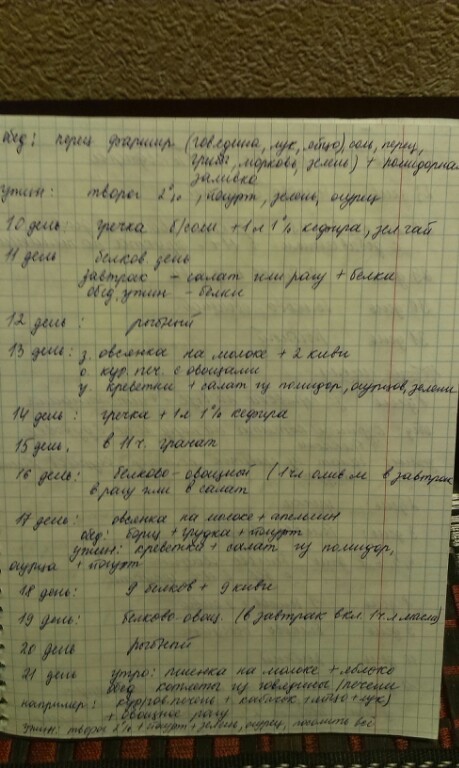 обед: перец фаршир (говядина, лук, яйцо), соль, перец,
гриб, морковь, зелень) + помидорная
заливка
ужин: творог 2%, йогурт, зелень, огурец
10 день: гречка б/соли + 1л 1% кефира, зел чай
11 день белков день
завтрак – салат или рагу + белки
обед, ужин – белки
12 день: рыбный
13 день: з. овсянка на молоке + 2 киви
о. кур. печ. с овощами
у. креветки + салат из помидор, огурцов, зелени
14 день: гречка + 1л 1% кефира
15 день, в 11 ч. гранат
16 день: белково-овощной (1 чл олив м в завтрак
в рагу или в салат
17 день: овсянка на молоке + апельсин
обед: борщ + грудка + йогурт
ужин: креветки + салат из помидор,
огурца + йогурт
18 день: 9 белков + 9 киви
19 день: белково-овощ. (в завтрак вкл. 1 ч.л масла)
20 день рыбный
21 день утро: пшенка на молоке + яблоко
обед котлеты из говядины/печени
например: кур/гов печень + кабачок + яйцо + лук)
+ овощное рагу
ужин: творог 2% + йогурт + зелень, огурец,